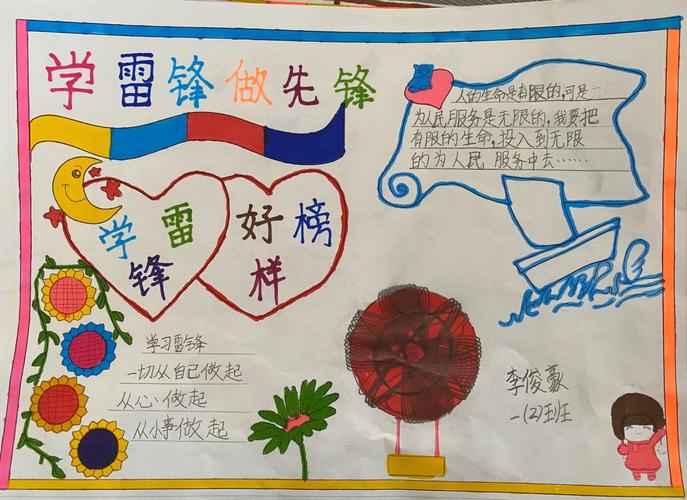 学雷锋做先锋
人的生命是有限的,可是一
为人民服务是无限的,我要把
有限的生命,投入到无限
的为人民 服务中去……
学雷
锋
好榜
样
学习雷锋
一切从自己做起
从心做起
从小事做起
李俊豪
一(2)班